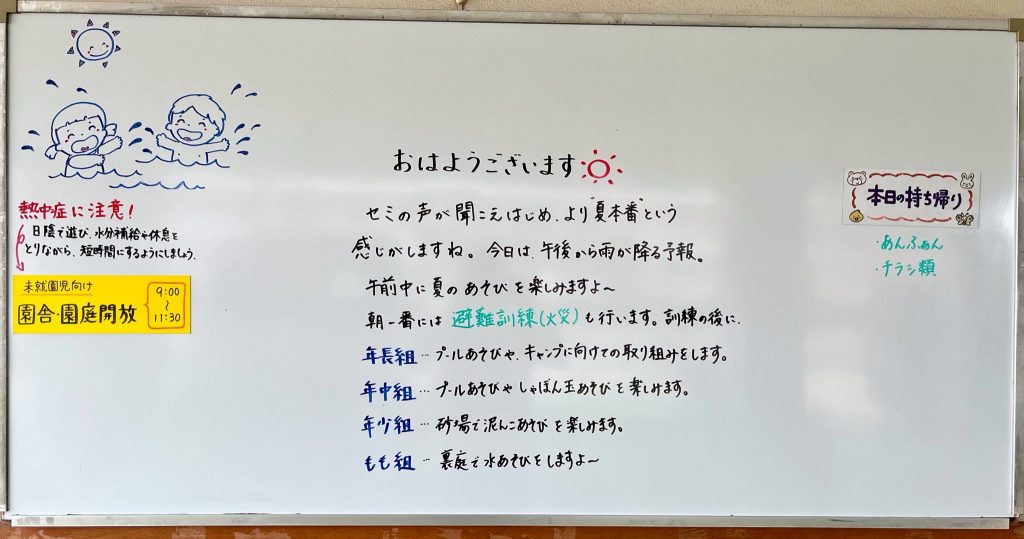 おはようございます
セミの声が聞こえはじめ、より"夏本番"という
感じがしますね。今日は、午後から雨が降る予報。
午前中に夏のあそびを楽しみますよ〜
朝一番には避難訓練(火災)も行います。訓練の後に、
年長組…プールあそびや、キャンプに向けての取り組みをします。
年中組…プールあそびやしゃぼん玉あそびを楽しみます。
年少組…砂場で泥んこあそびを楽しみます。
もも組…裏庭で水あそびをしますよ〜
熱中症に注意!
日陰で遊び、水分補給や休息を
とりながら、短時間にするようにしましょう。
未就園児向け
園舎・園庭開放
9:00
〜
11:30
本日の持ち帰り
・あんふぁん
・チラシ類